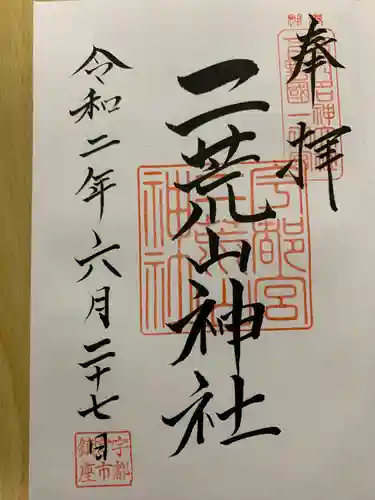 奉拝
二荒山神社
令和二年六月二十七日
宇都宮
二荒山
神社
宇都
宮市
鎮座